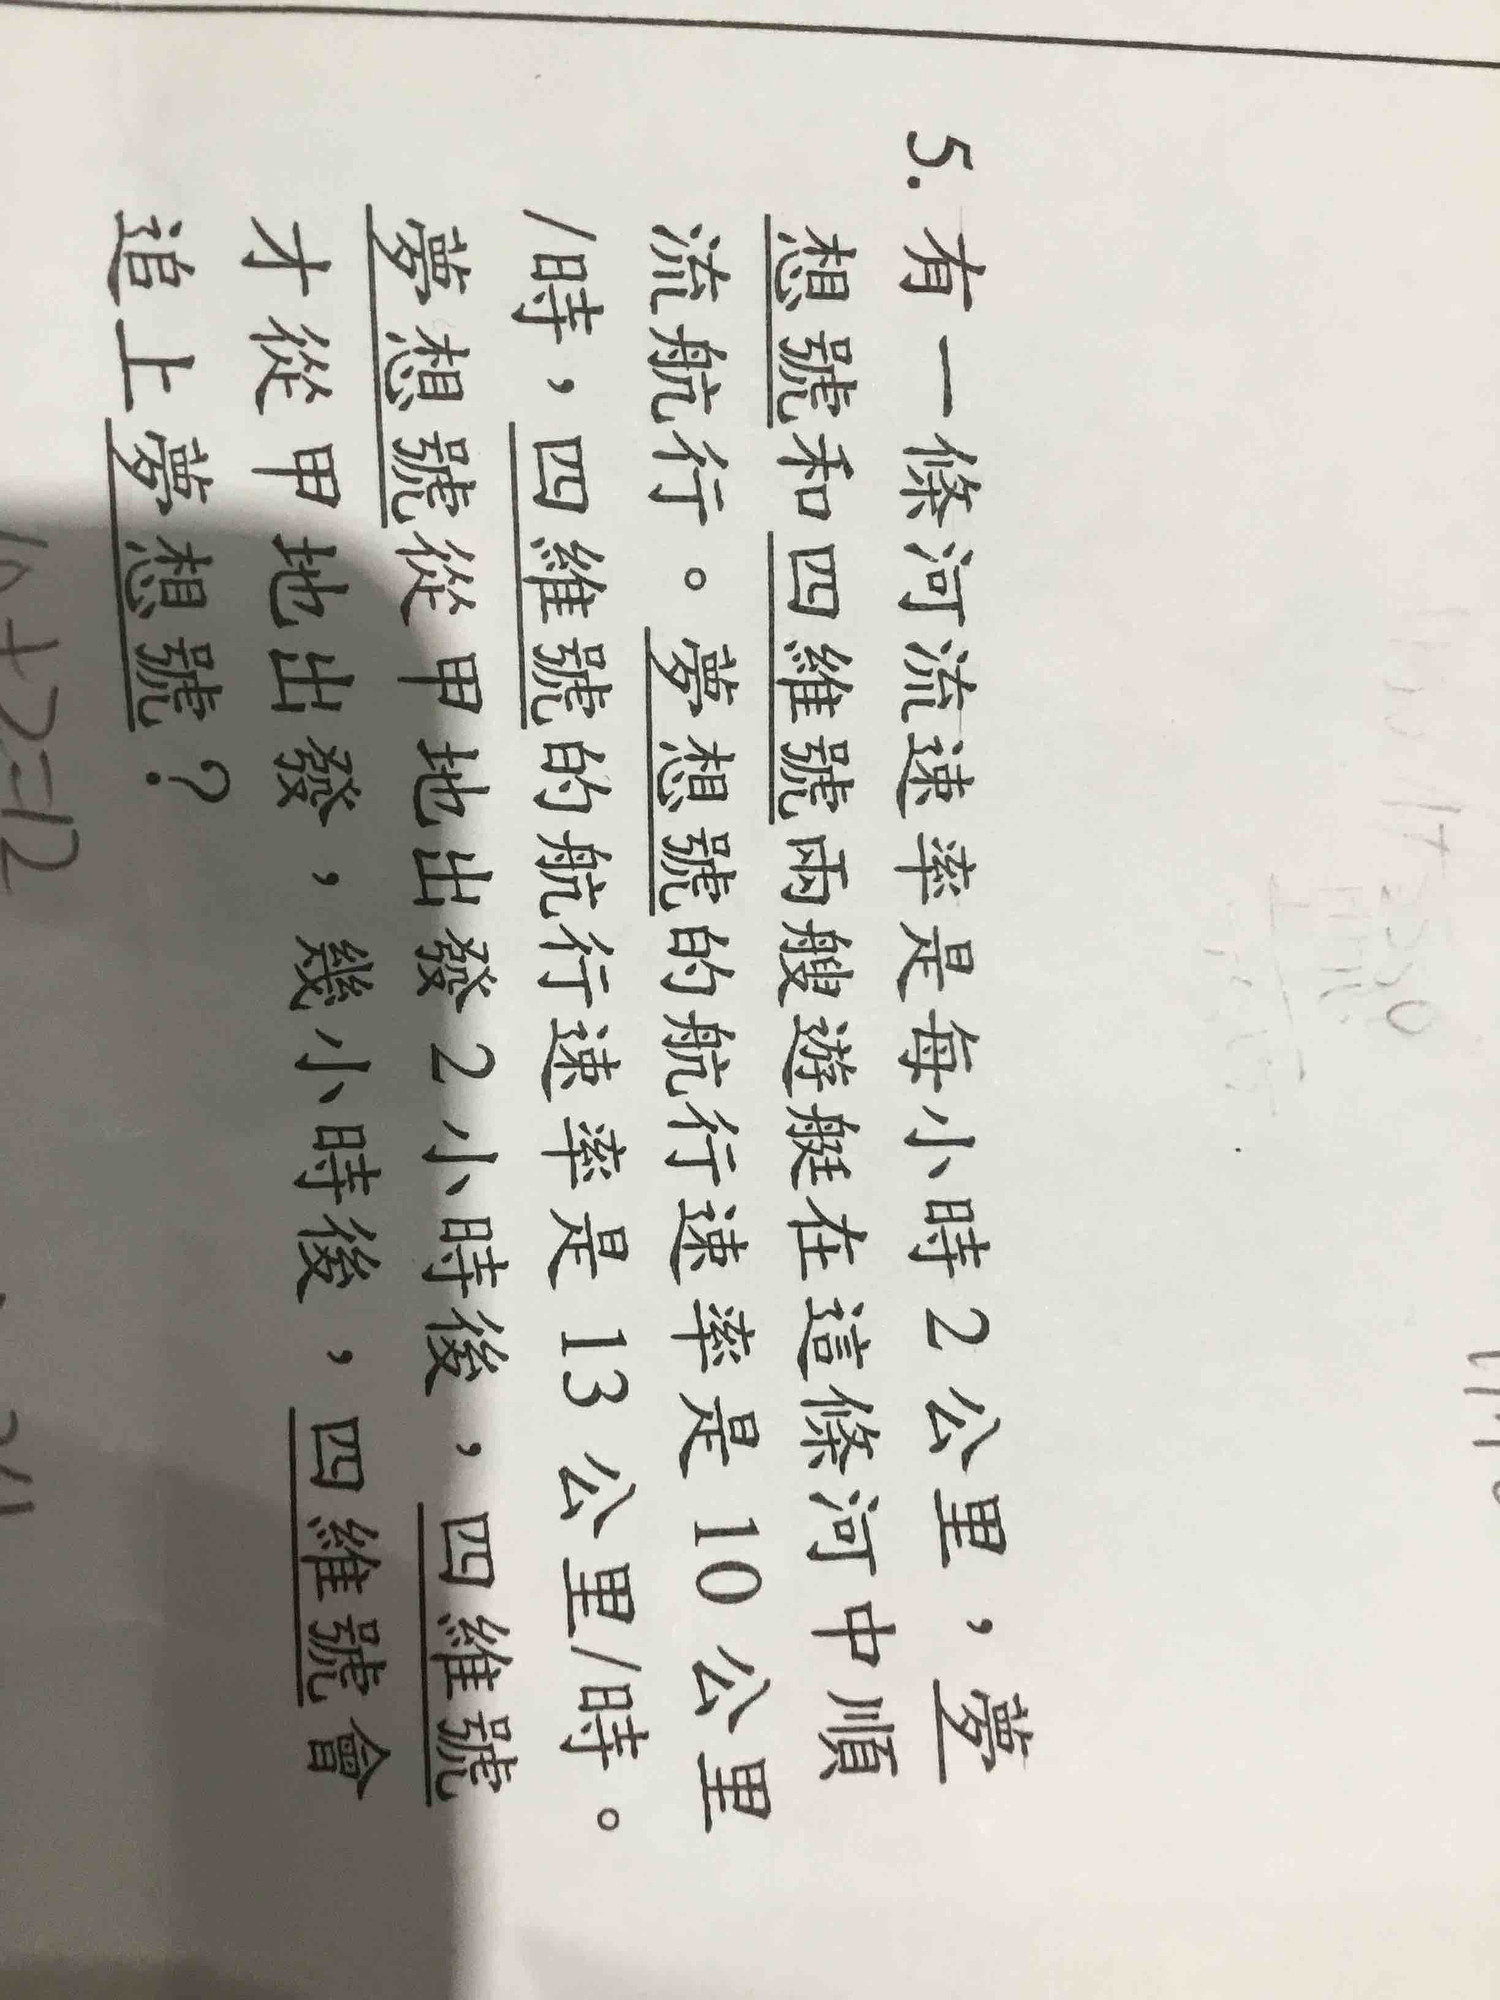 5. 有一條河流速率是每小時2公里，夢
想號和四維號兩艘遊艇在這條河中順
流航行。夢想號的航行速率是10公里
/時，四維號的航行速率是13公里/時。
夢想號從甲地出發2小時後，四維號
才從甲地出發，幾小時後，四維號會
追上夢想號？
10+2=12